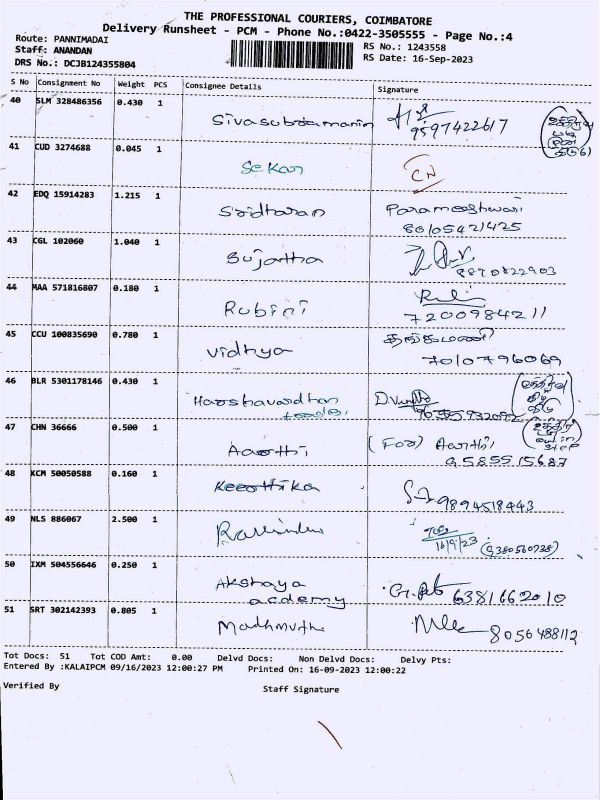 THE PROFESSIONAL COURIERS, COIMBATORE
Delivery Runsheet - PCM - Phone No.:0422-3505555 - Page No.:4
Route: PANNIMADAI
Staff: ANANDAN
DRS No.: DCJB124355804
RS No.: 1243558
RS Date: 16-Sep-2023
S No Consignment No Weight PCS Consignee Details Signature
40 SLM 328486356 0.430 1
Sivasubramanin 9597422617
41 CUD 3274688 0.045 1
Sekar CN
42 EDQ 15914283 1.215 1
Sridharan Parameshwari
80105421425
43 CGL 102060 1.040 1
Sujatha 8870822903
44 MAA 571816807 0.180 1
Rubini 7200984211
45 CCU 100835690 0.780 1
Vidhya தங்கமணி
7010796069
46 BLR 5301178146 0.430 1
Harshavardhan
47 CHN 36666 0.500 1
Aarthi (For) Aarthi
9585515687
48 KCM 50050588 0.160 1
Keerthika 9894518443
49 NLS 886067 2.500 1
16/9/23 (9380560738)
50 IXM 504556646 0.250 1
Akshaya
acdemy 6381662010
51 SRT 302142393 0.805 1
Madhmutha 8056488112
Tot Docs: 51 Tot COD Amt: 0.00 Delvd Docs: Non Delvd Docs: Delvy Pts:
Entered By :KALAIPCM 09/16/2023 12:00:27 PM Printed On: 16-09-2023 12:00:22
Verified By Staff Signature